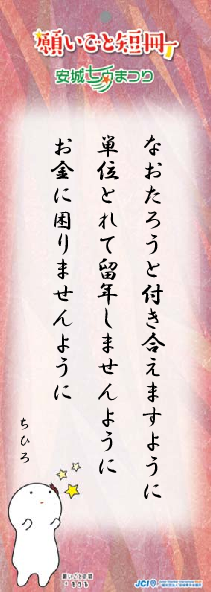 願いごと短冊
安城七夕まつり
なおたろうと付き合えますように
単位とれて留年しませんように
お金に困りませんように
ちひろ
願いごと応援
きーぼー
JCI